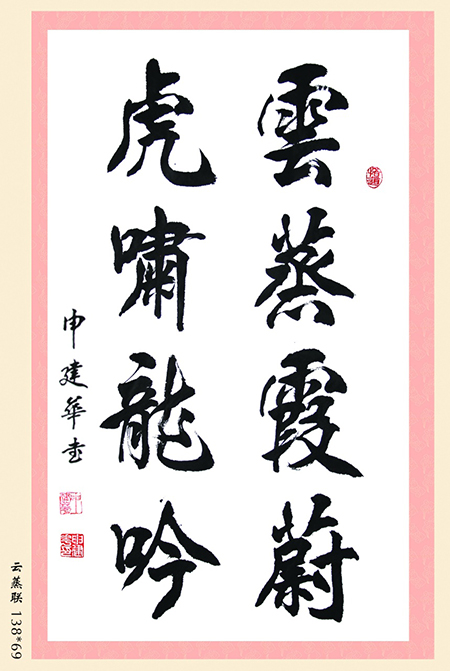 雲蒸霞蔚
虎嘯龍吟
申建華書
云蒸联 138*69